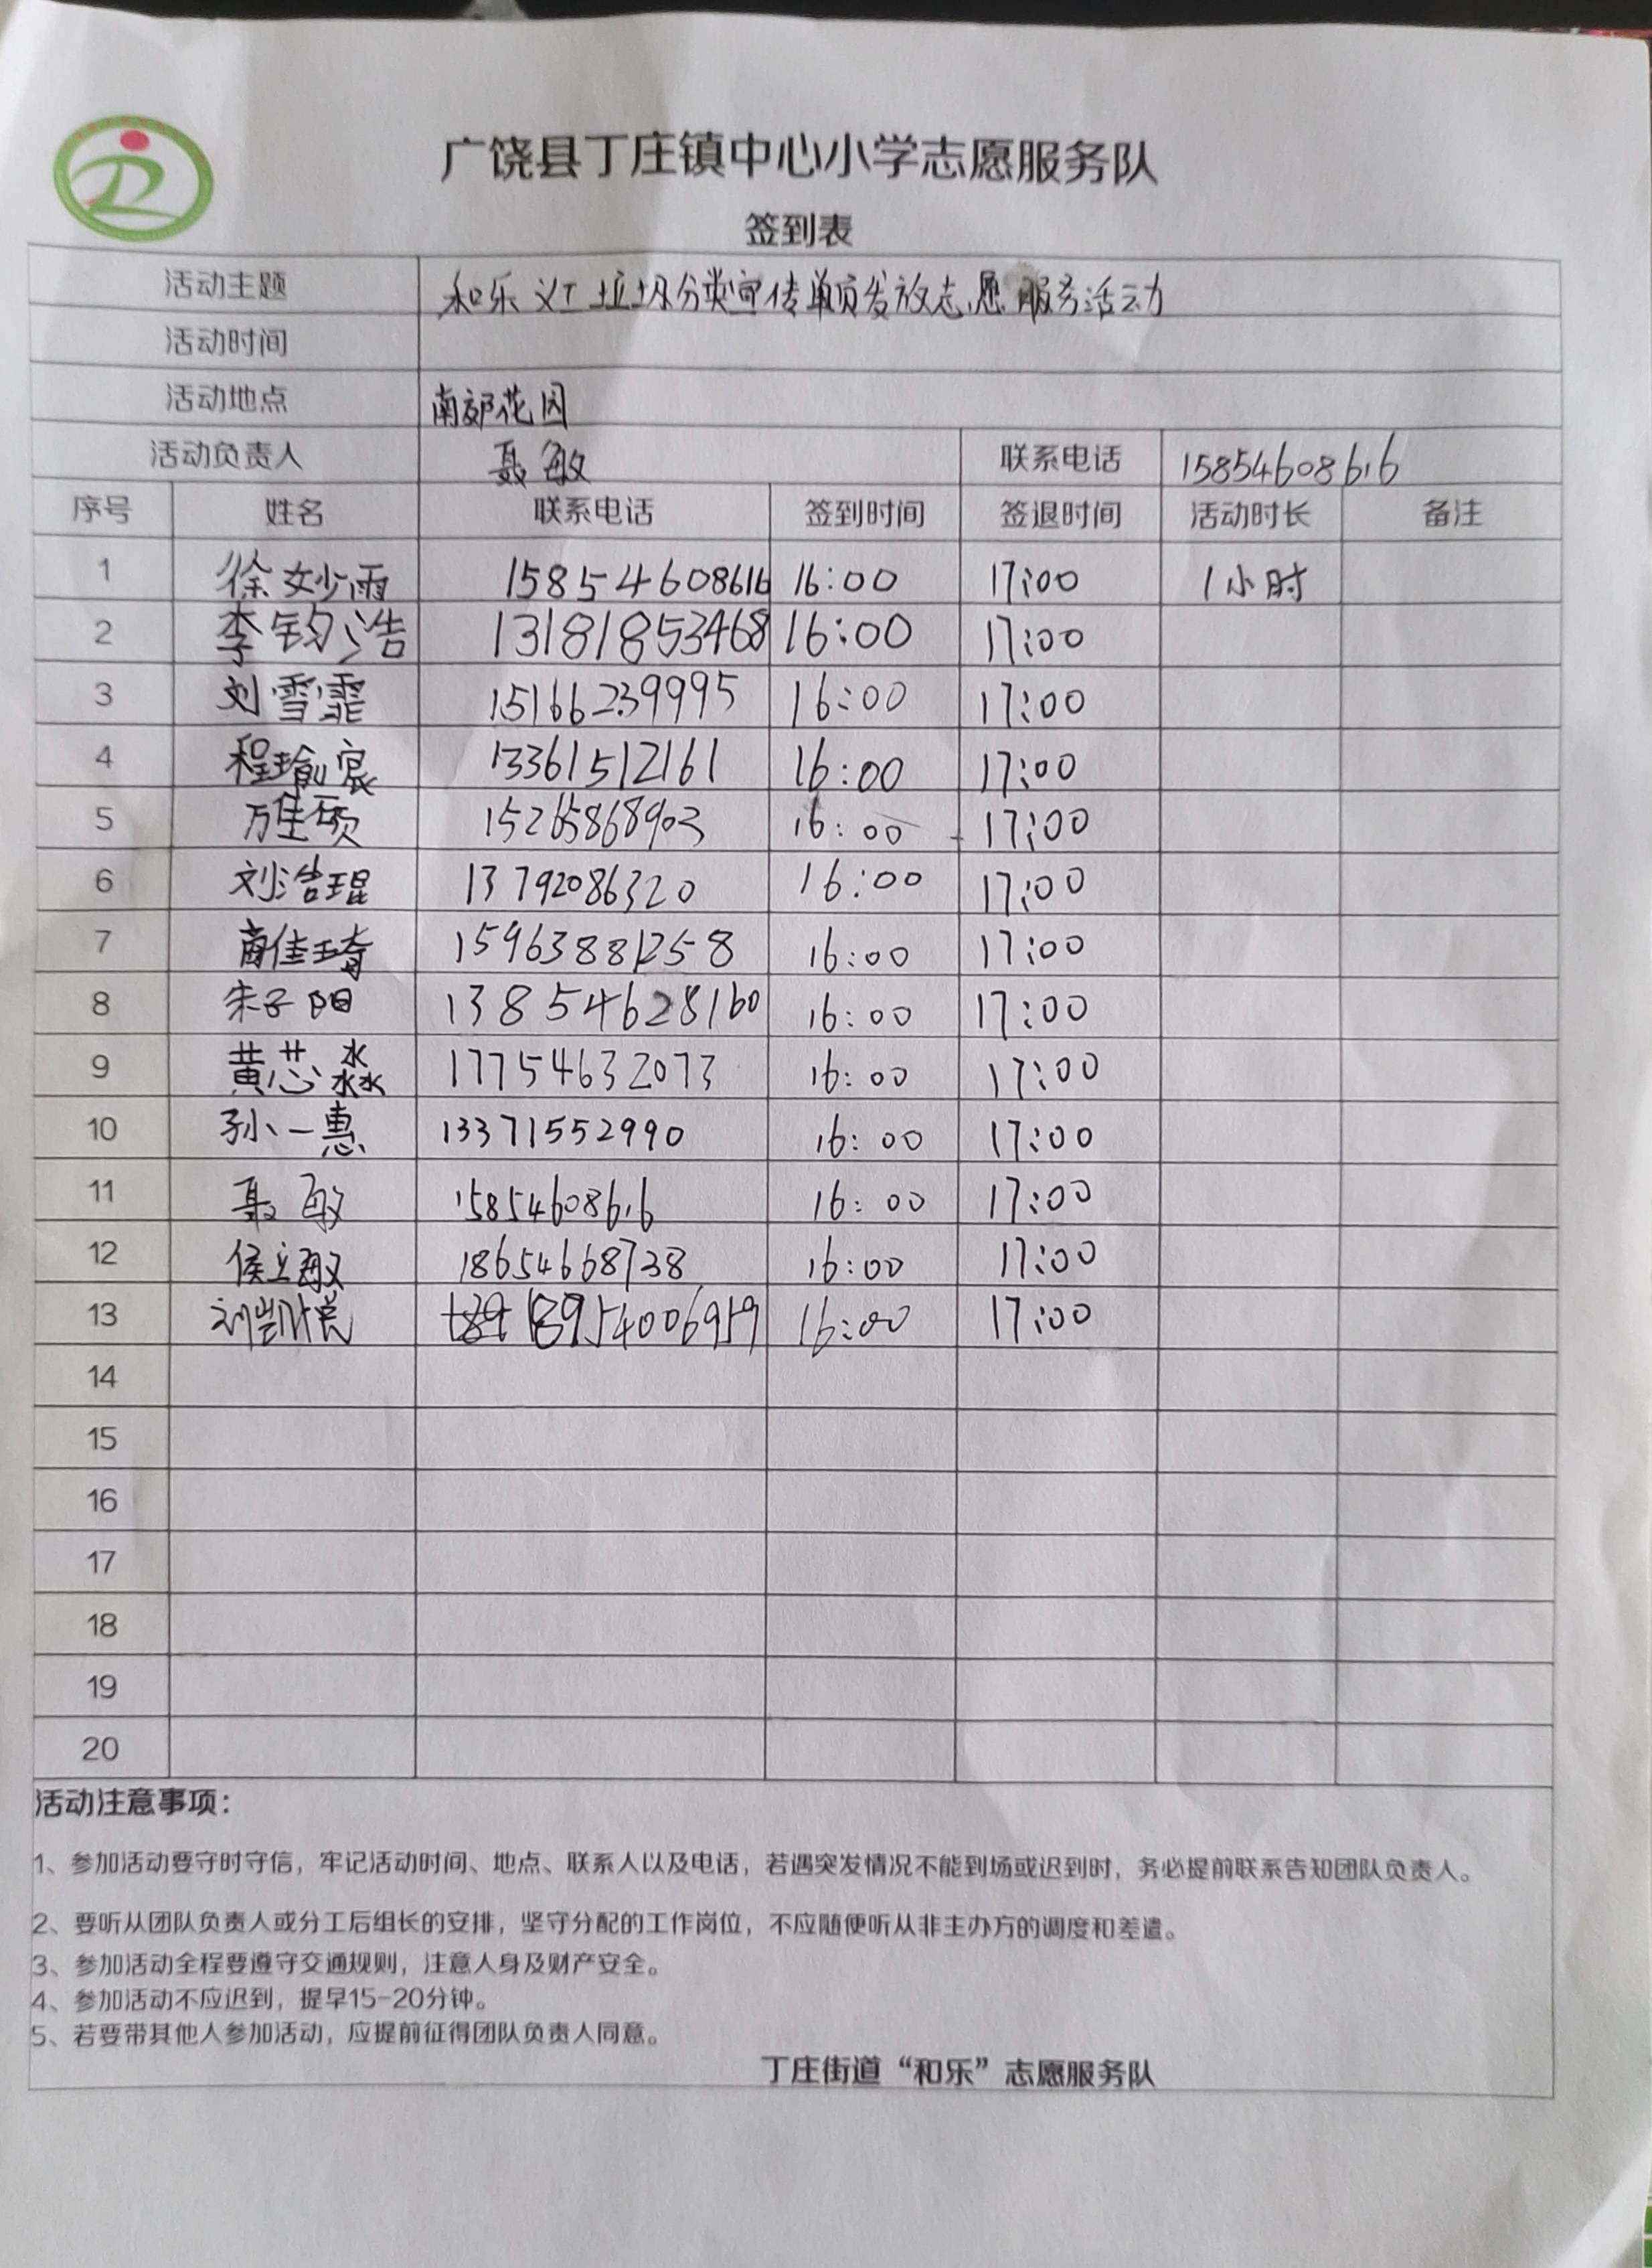 广饶县丁庄镇中心小学志愿服务队
签到表
活动主题 和乐义工垃圾分类宣传单页发放志愿服务活动
活动时间
活动地点 南郊花园
活动负责人 聂敏 联系电话 15854608616
序号 姓名 联系电话 签到时间 签退时间 活动时长 备注
1 徐妙雨 15854608616 16:00 17:00 1小时
2 李钧浩 13181853468 16:00 17:00
3 刘雪霏 15166239995 16:00 17:00
4 程瑜宸 13361512161 16:00 17:00
5 万佳硕 15265868903 16:00 17:00
6 刘浩琨 13792086320 16:00 17:00
7 商佳琦 15963881258 16:00 17:00
8 朱子阳 13854628160 16:00 17:00
9 黄芯淼 17754632073 16:00 17:00
10 孙一惠 13371552990 16:00 17:00
11 聂敏 15854608616 16:00 17:00
12 侯立敏 18654668738 16:00 17:00
13 刘凯悦 18954006959 16:00 17:00
14
15
16
17
18
19
20
活动注意事项：
1、参加活动要守时守信，牢记活动时间、地点、联系人以及电话，若遇突发情况不能到场或迟到时，务必提前联系告知团队负责人。
2、要听从团队负责人或分工后组长的安排，坚守分配的工作岗位，不应随便听从非主办方的调度和差遣。
3、参加活动全程要遵守交通规则，注意人身及财产安全。
4、参加活动不应迟到，提早15-20分钟。
5、若要带其他人参加活动，应提前征得团队负责人同意。
丁庄街道“和乐”志愿服务队